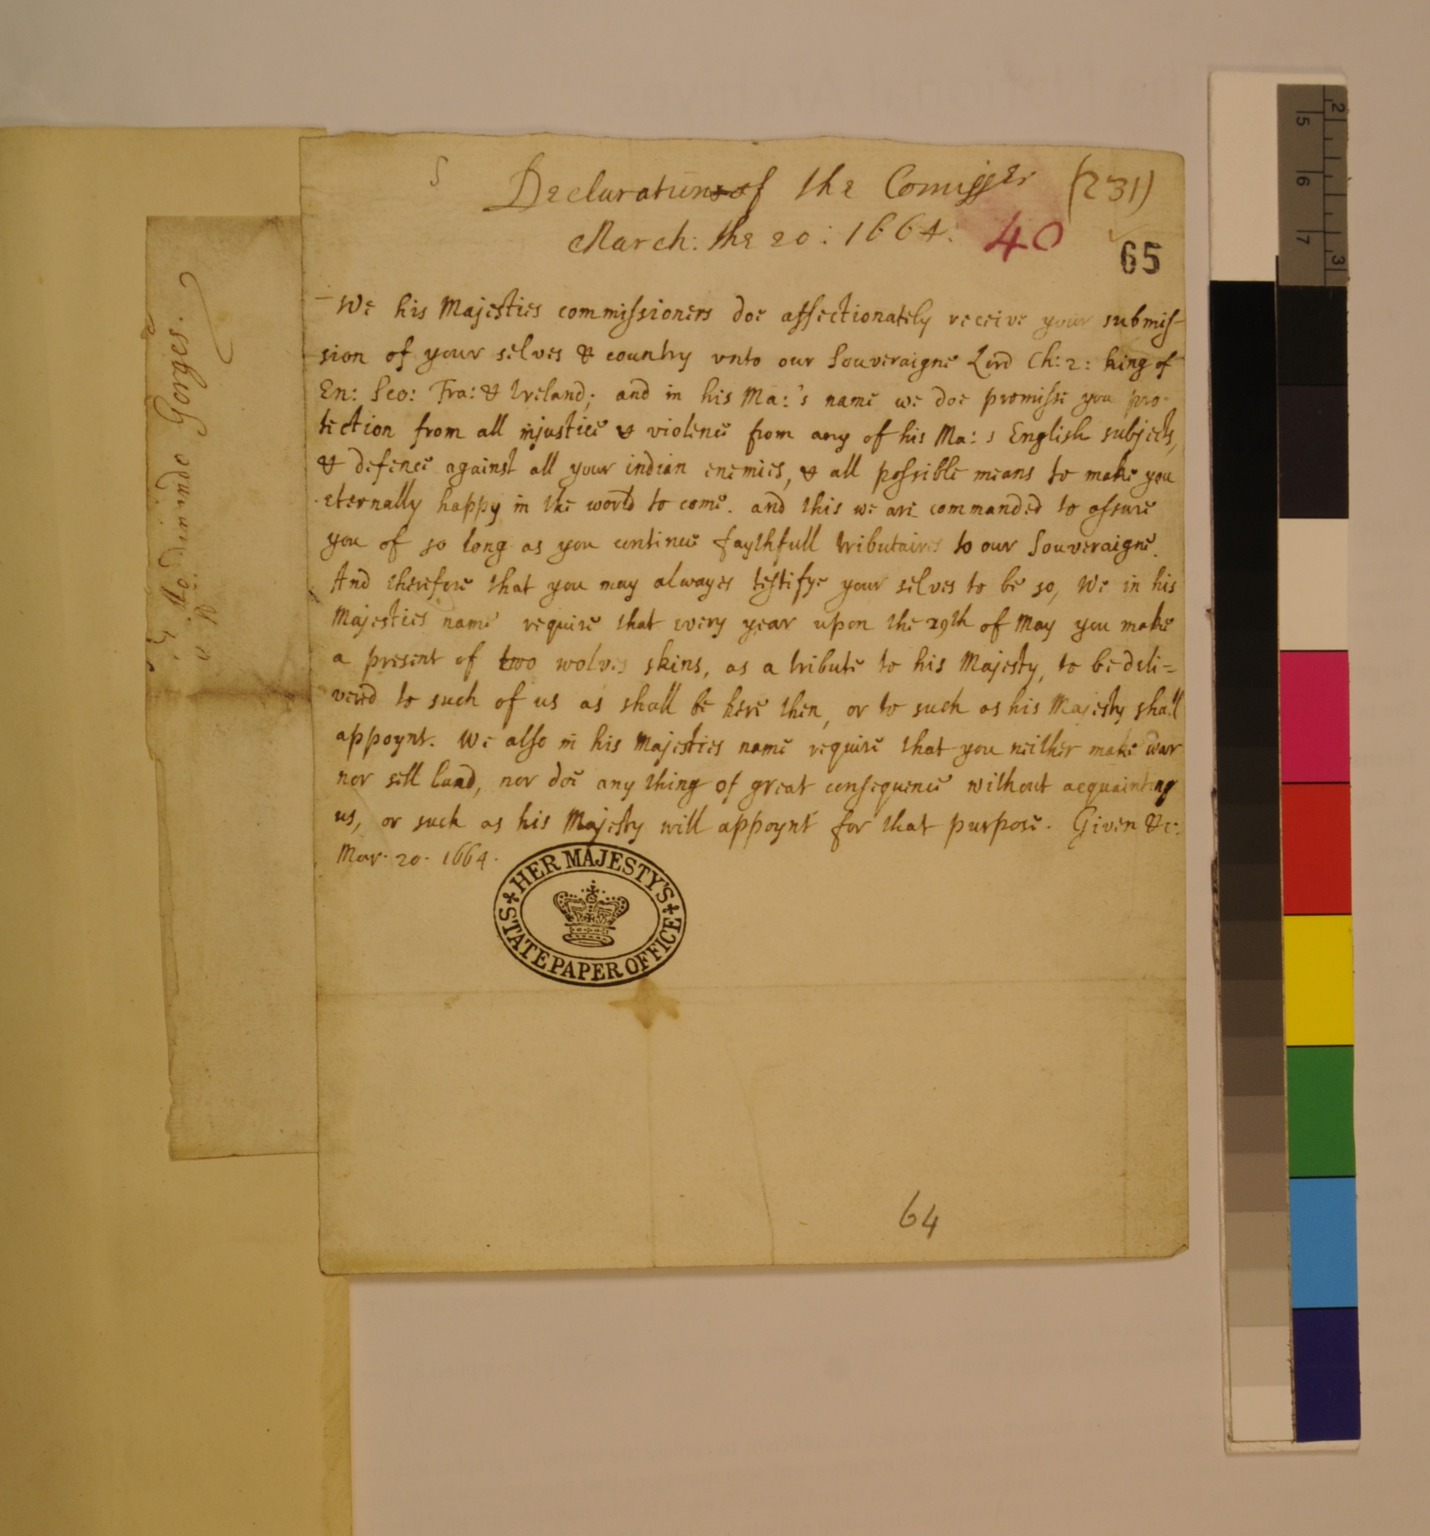 S Declaration of the Comisser (231)
March: the 20: 1664. 40
65
We his Majesties commissioners doe affectionately receive your submis-
sion of your selves & country vnto our Souveraigne Lord Ch: 2: king of
En: Sco: Fra: & Ireland; and in his Ma:'s name we doe promisse you pro-
tection from all injustice & violence from any of his Ma:s English subjects,
& defence against all your indian enemies, & all possible means to make you
eternally happy in the world to come. and this we are commanded to assure
you of so long as you continue faythfull tributaires to our Souveraigne.
And therefore that you may alwayes testifye your selves to be so, We in his
Majesties name require that every year upon the 29th of May you make
a present of two wolves skins, as a tribute to his Majesty, to be deli-
vered to such of us as shall be here then, or to such as his Majesty shall
appoynt. We also in his Majesties name require that you neither make war
nor sell land, nor doe any thing of great consequence without acquainting
us, or such as his Majesty will appoynt for that purpose. Given &c:
Mar. 20. 1664.
HER MAJESTY'S
STATE PAPER OFFICE
64
Gorges.
5 6 7
2 3